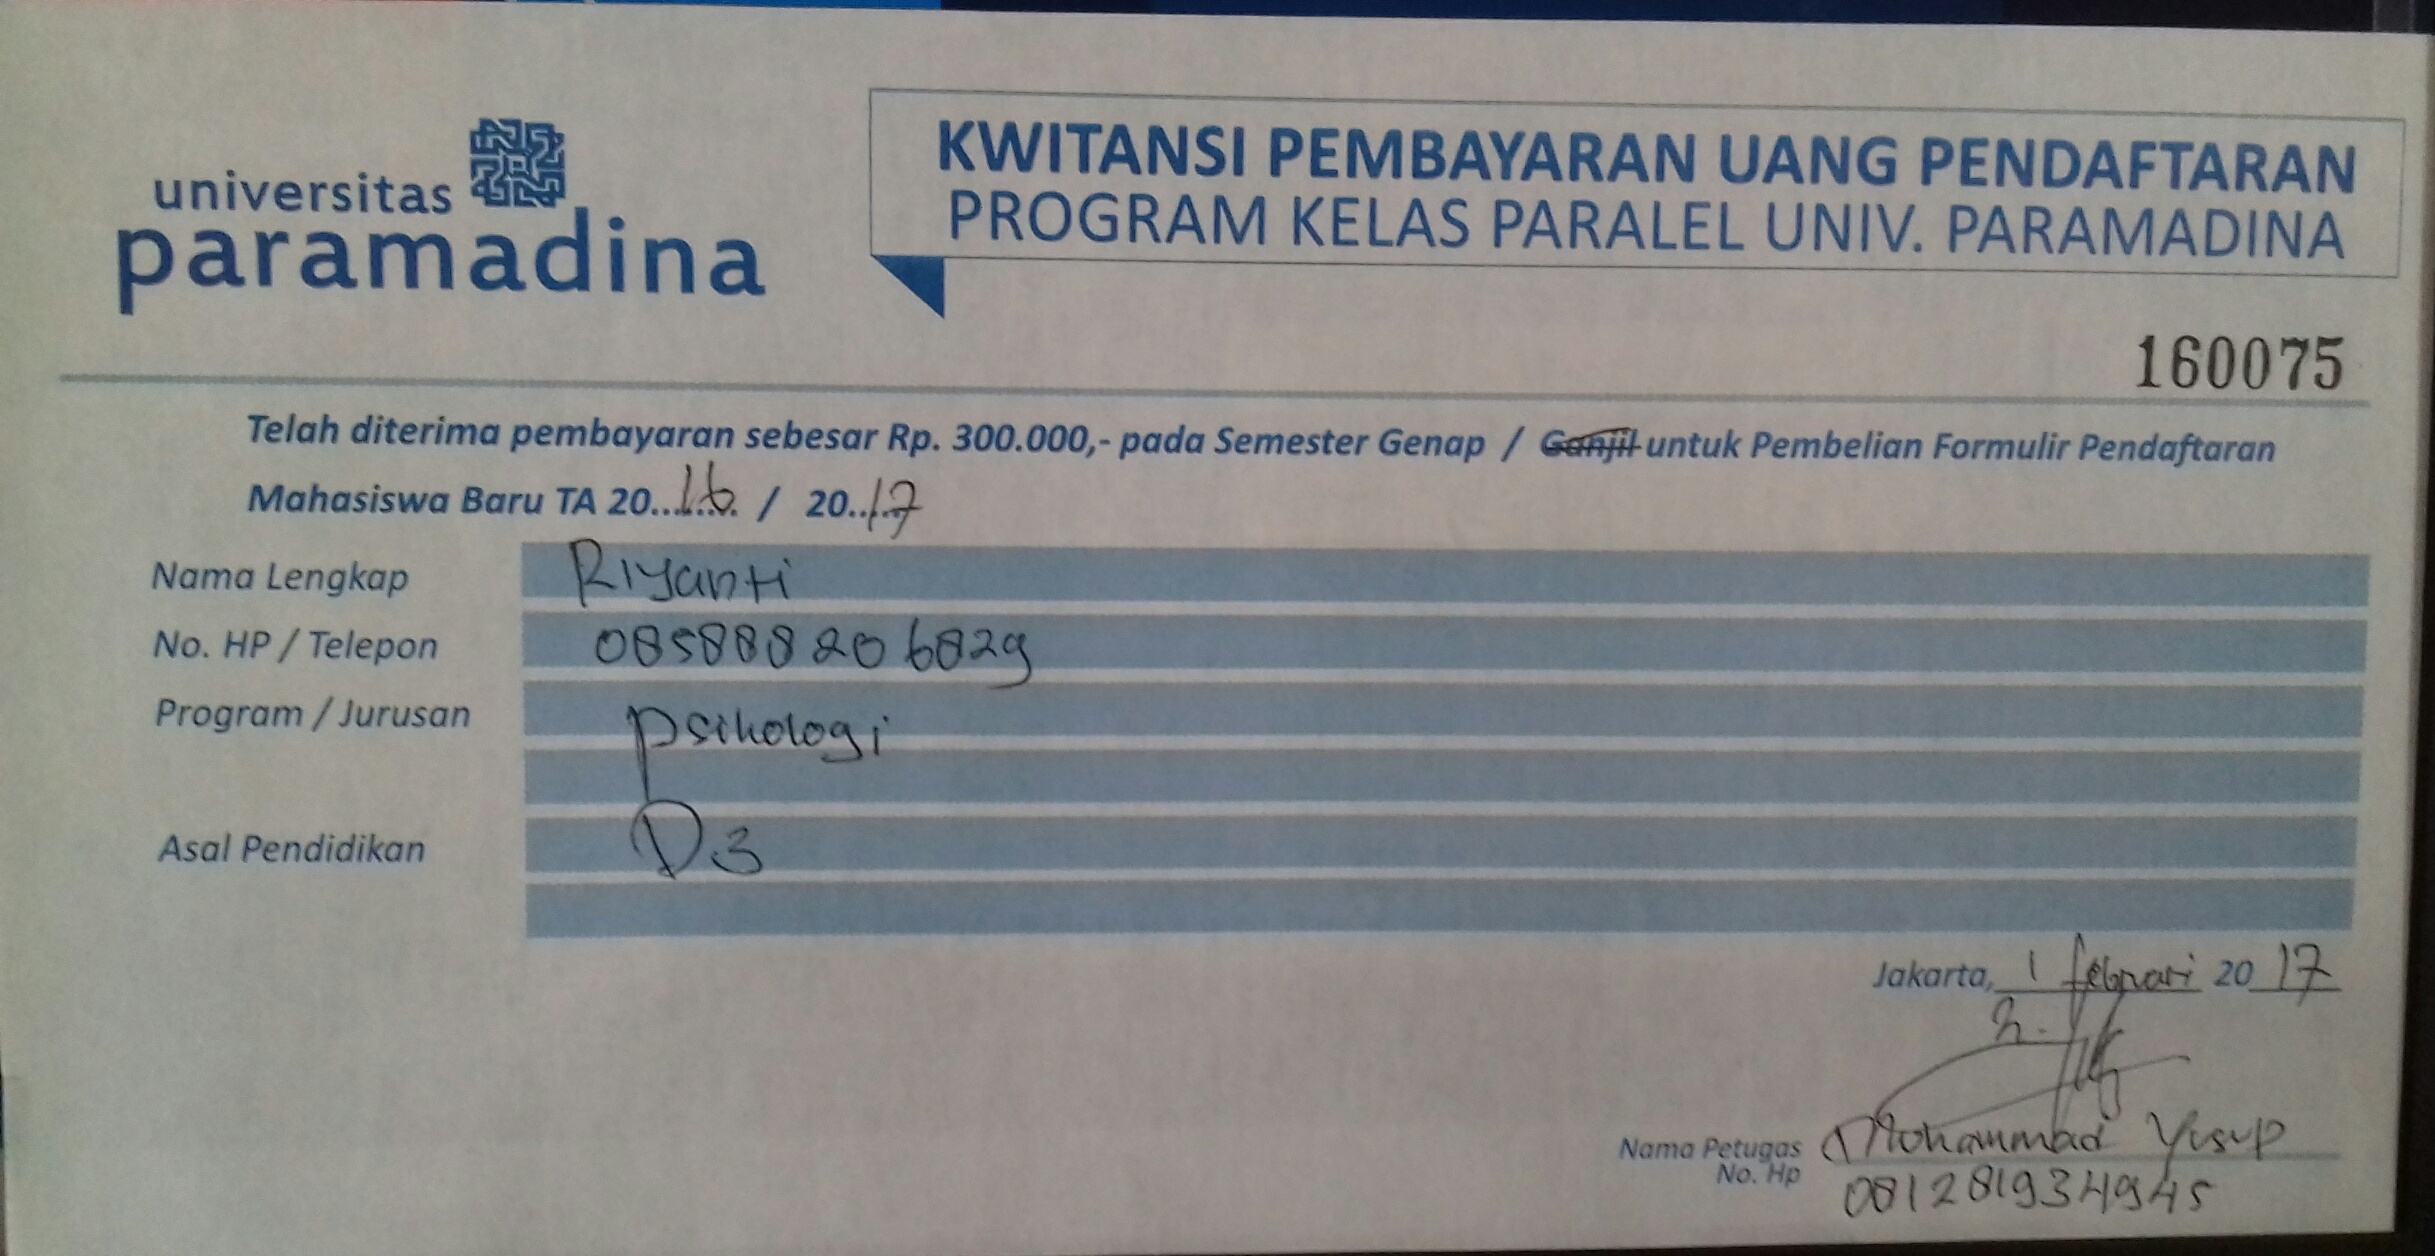 universitas
paramadina
KWITANSI PEMBAYARAN UANG PENDAFTARAN
PROGRAM KELAS PARALEL UNIV. PARAMADINA
160075
Telah diterima pembayaran sebesar Rp. 300.000,- pada Semester Genap / Ganjil untuk Pembelian Formulir Pendaftaran
Mahasiswa Baru TA 20...16... / 20...17
Nama Lengkap Riyanti
No. HP / Telepon 085888206829
Program / Jurusan psikologi
Asal Pendidikan D3
Jakarta, 1 februari 20 17
Nama Petugas Mohammad Yusup
No. Hp 081281934945